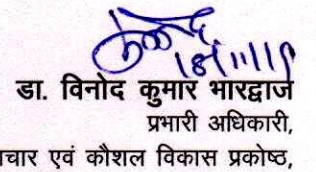 डा. विनोद कुमार भारद्वाज
प्रभारी अधिकारी,
चार एवं कौशल विकास प्रकोष्ठ,